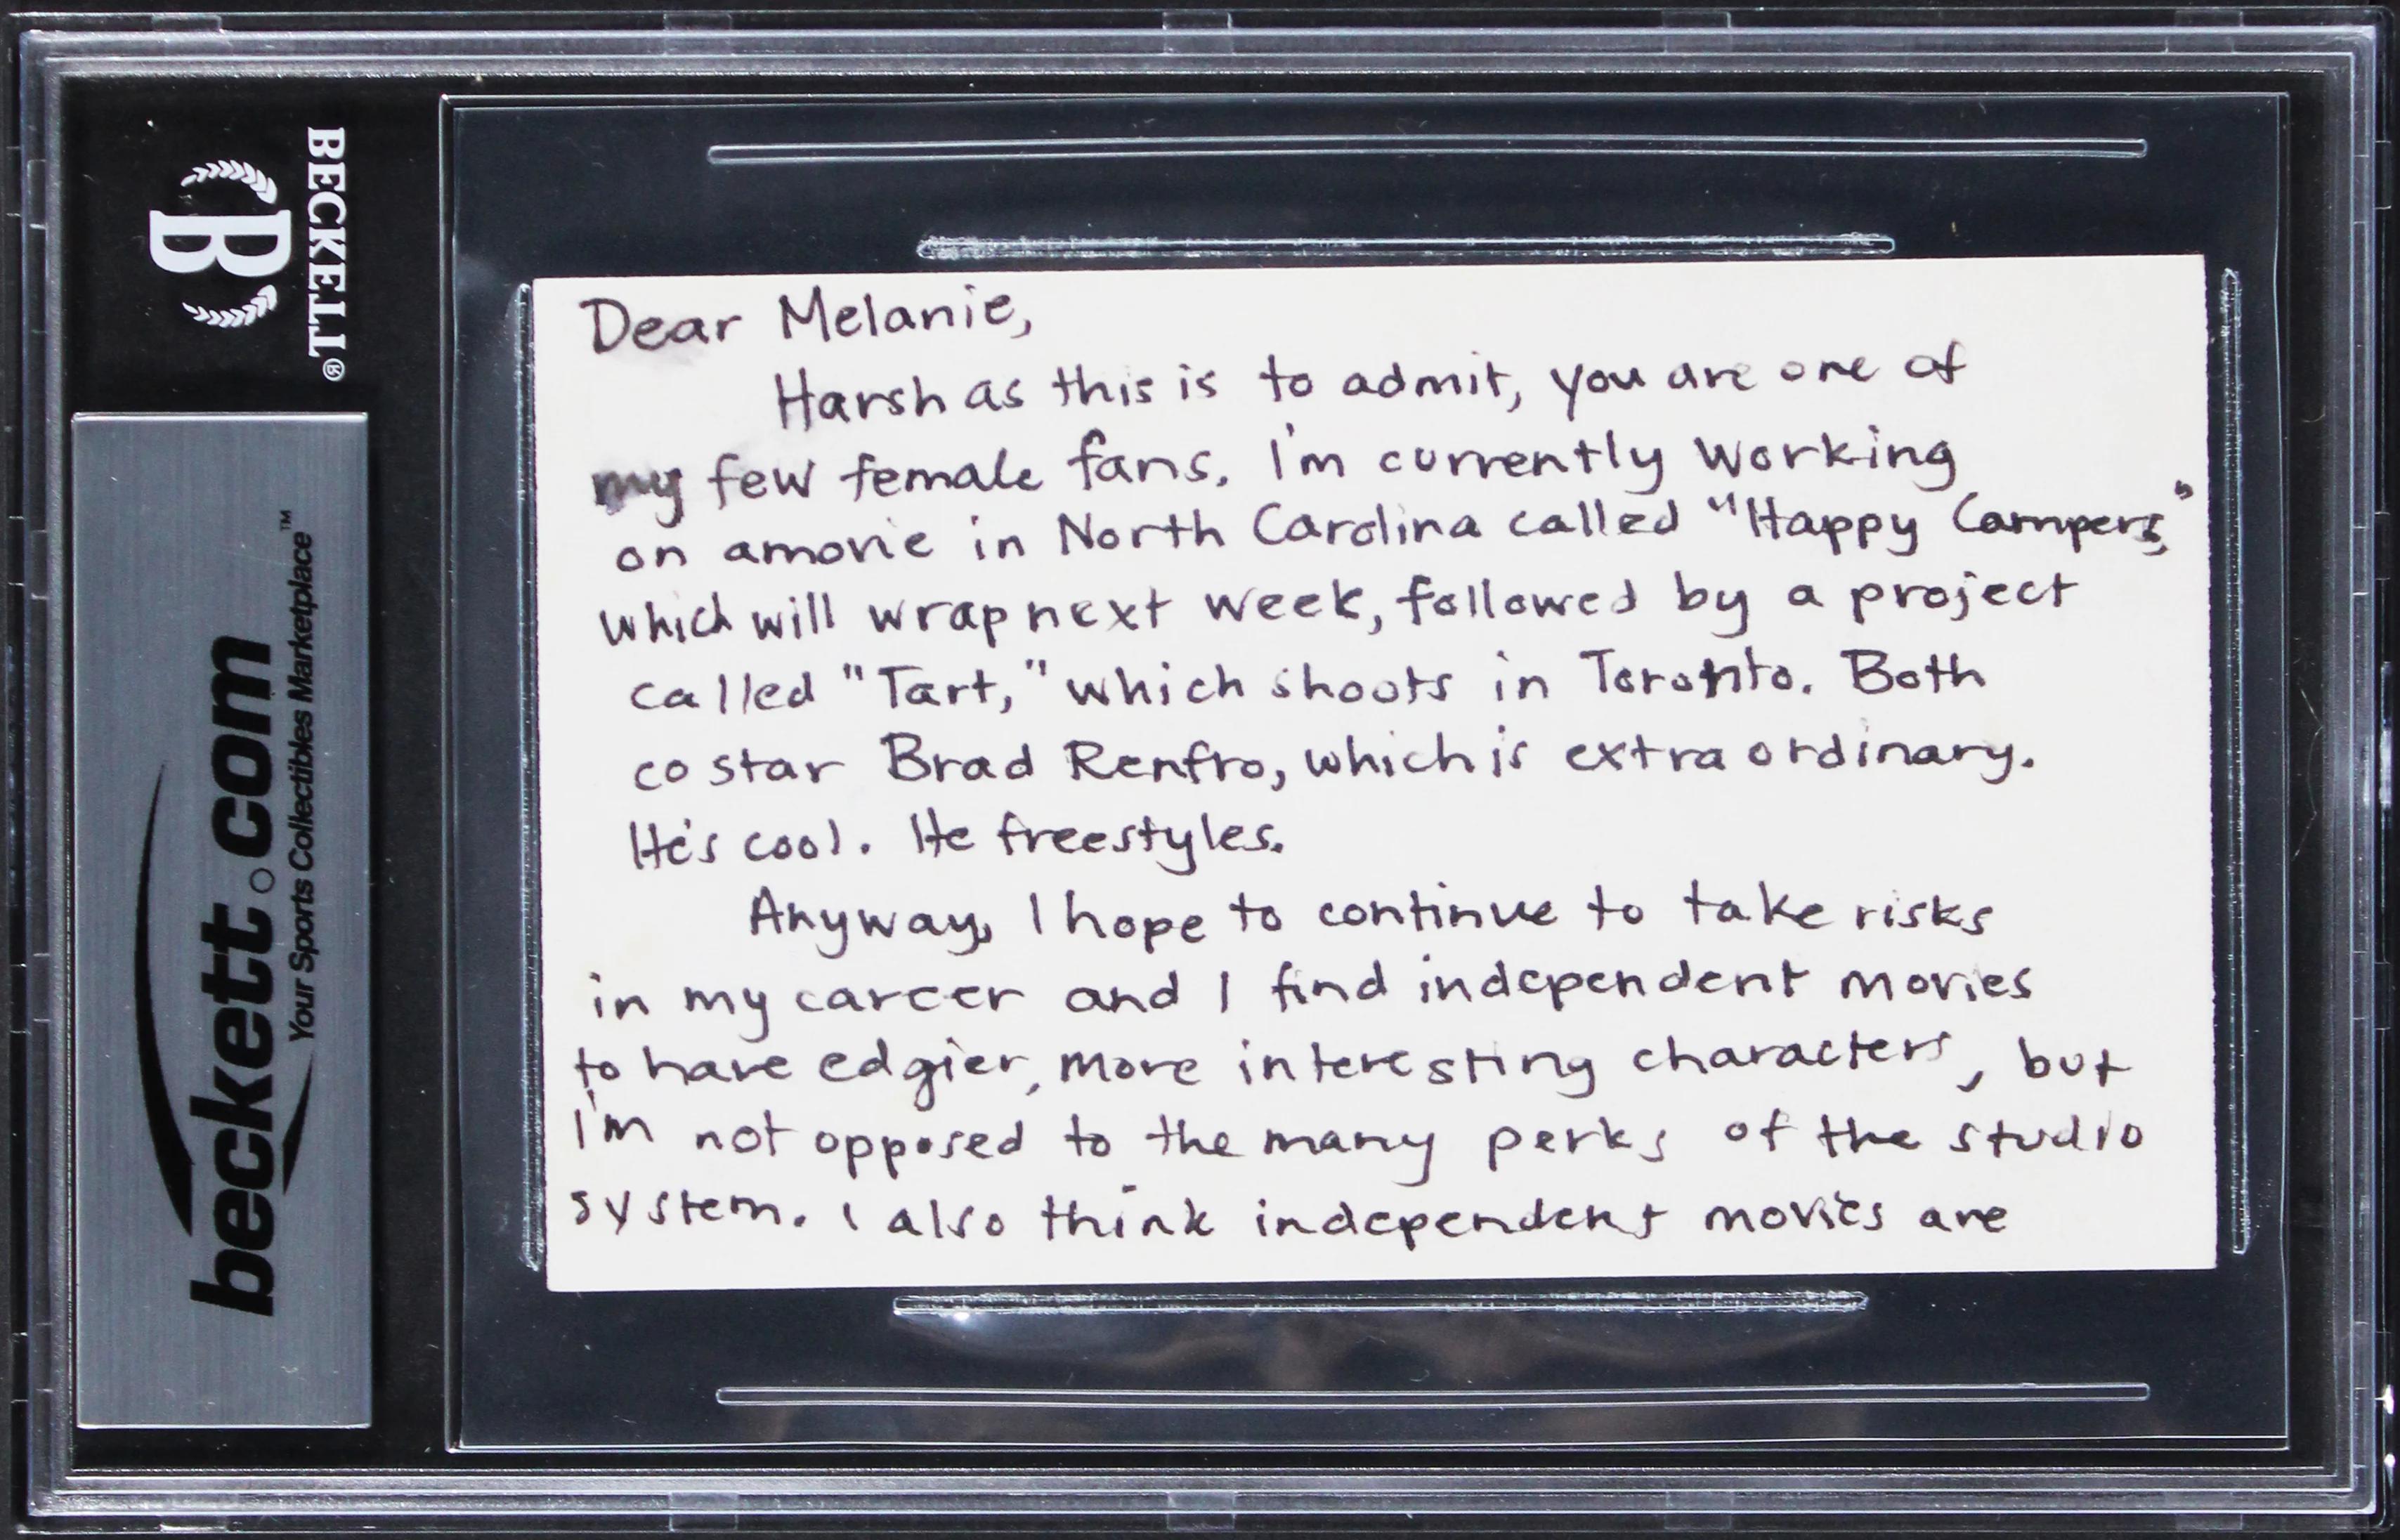 BECKETT®
B
beckett.com
Your Sports Collectibles Marketplace™
Dear Melanie,
Harsh as this is to admit, you are one of
my few female fans. I'm currently working
on a movie in North Carolina called "Happy Campers,"
which will wrap next week, followed by a project
called "Tart," which shoots in Toronto. Both
co star Brad Renfro, which is extraordinary.
He's cool. He freestyles.
Anyway, I hope to continue to take risks
in my career and I find independent movies
to have edgier, more interesting characters, but
I'm not opposed to the many perks of the studio
system. I also think independent movies are